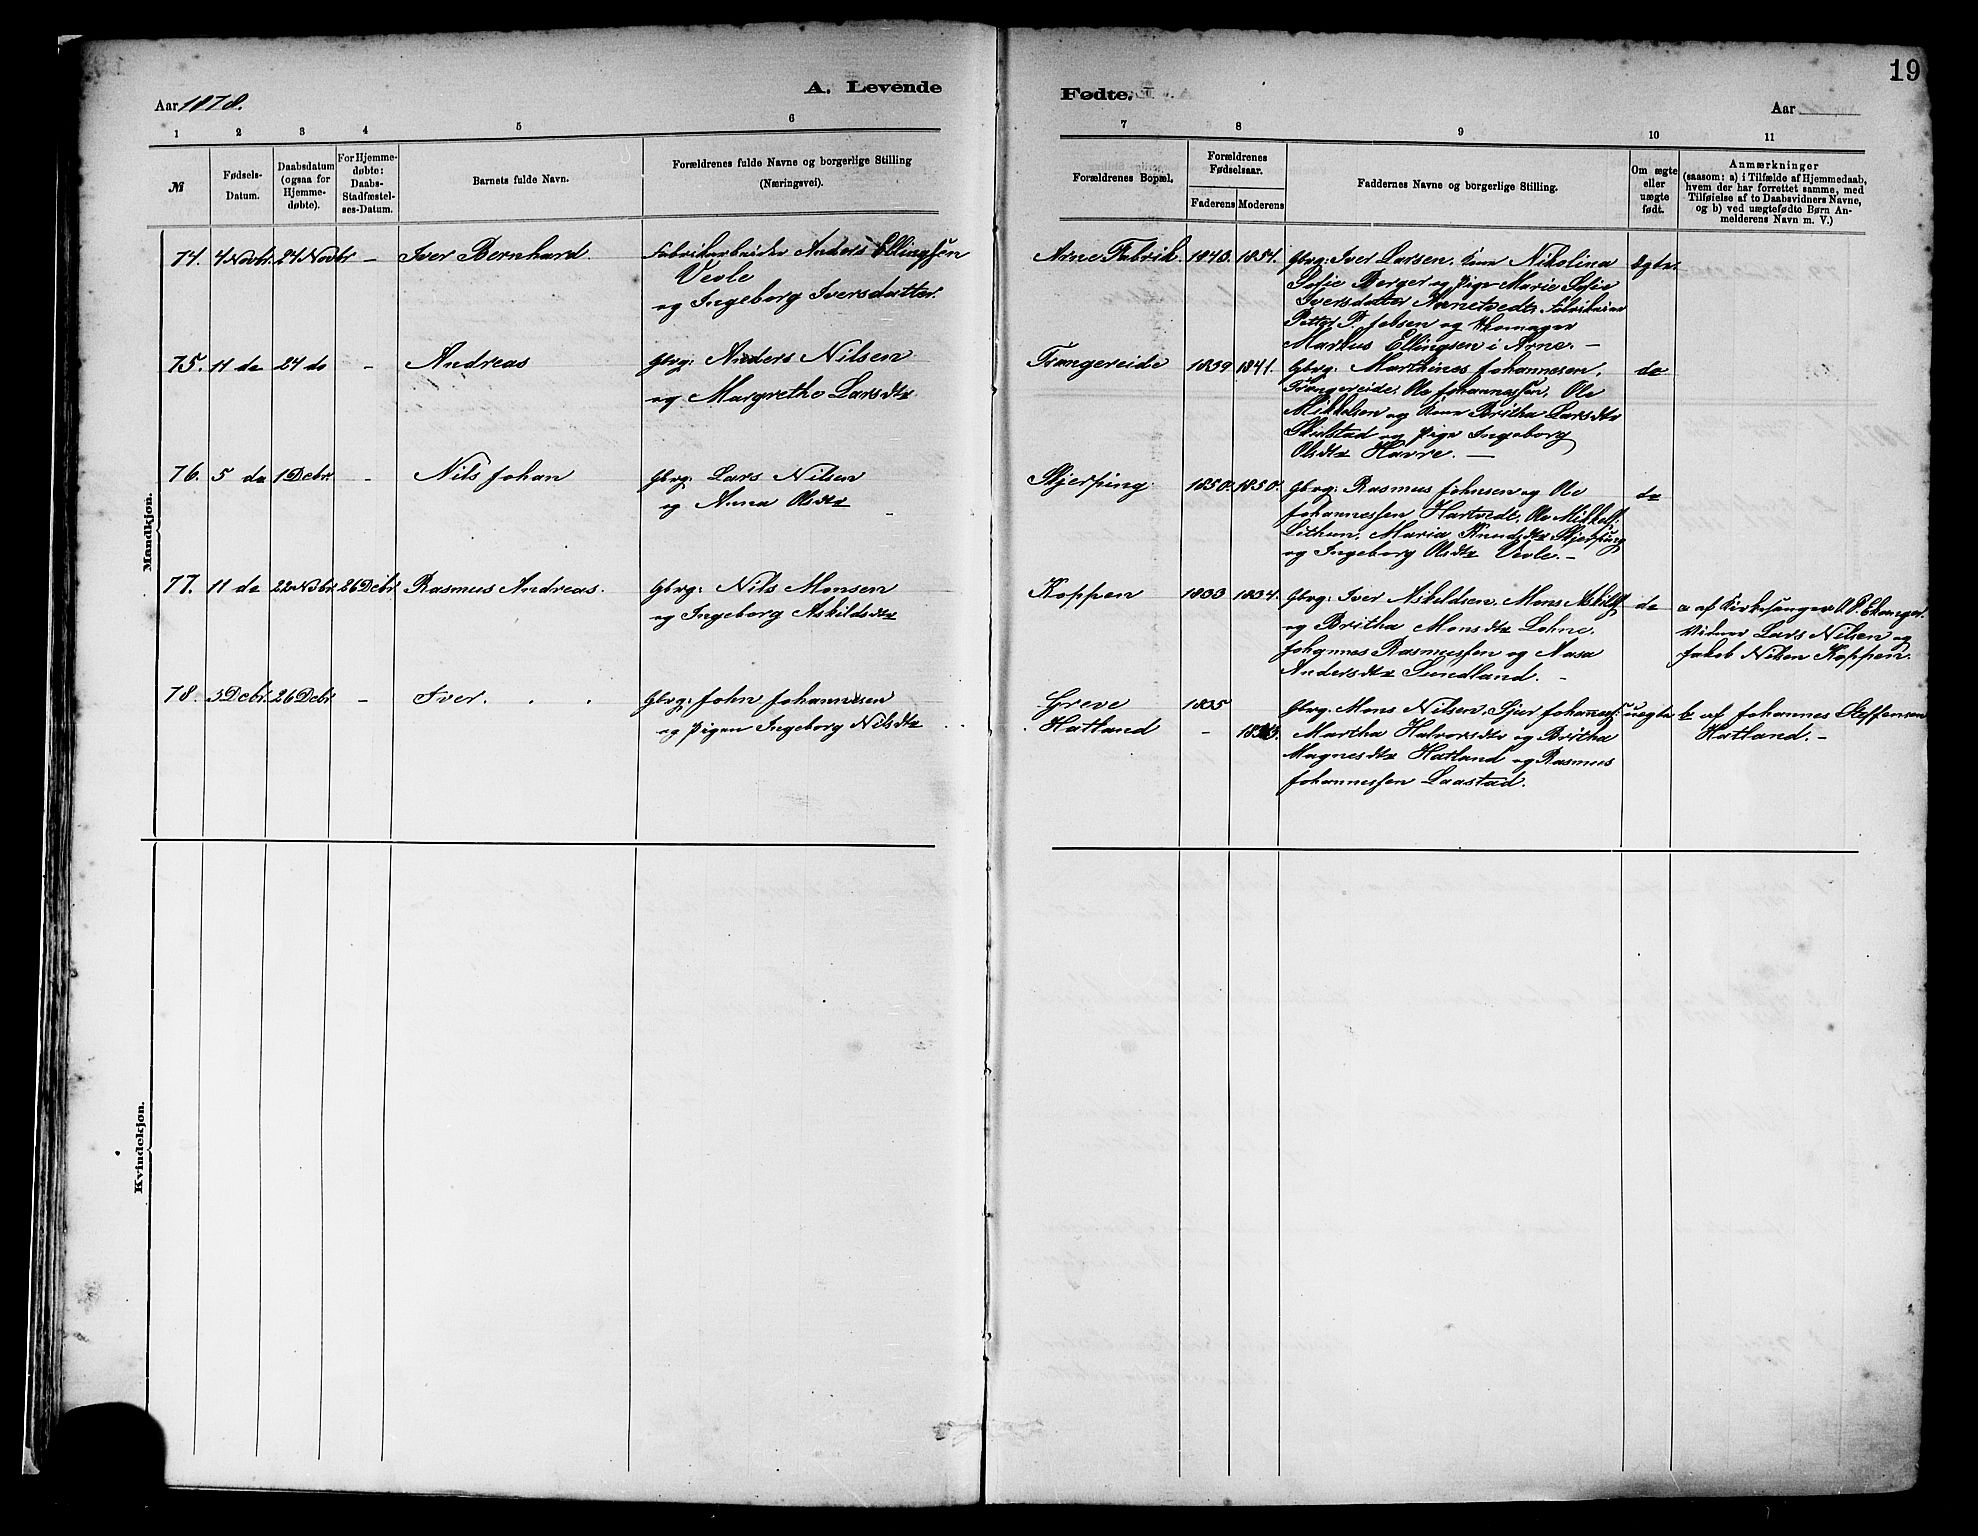 19
Aar 1878.
A. Levende
Fødte.
Aar
1 2 3 4 5 6
7 8 9 10 11
№
Fødsels-
Datum.
Daabsdatum
(ogsaa for
Hjemme-
døbte).
For Hjemme-
døbte:
Daabs-
Stadfæstel-
ses-Datum.
Barnets fulde Navn.
Forældrenes fulde Navne og borgerlige Stilling
(Næringsvei).
Forældrenes Bopæl.
Forældrenes
Fødselsaar.
Faderens Moderens
Faddernes Navne og borgerlige Stilling.
Om ægte
eller
uægte
født.
Anmærkninger
(saasom: a) i Tilfælde af Hjemmedaab,
hvem der har forrettet samme, med
Tilføielse af to Daabsvidners Navne,
og b) ved uægtefødte Børn An-
melderens Navn m. V.)
Mandkjøn.
74. 4 Novbr. 24 Novbr - Iver Bernhard. Fabrikarbeider Anders Ellingsen
Vevle
og Ingeborg Iversdatter.
Arne Fabrik. 1854. Gbrg: Iver Larsen, Kone Nikolina Ægte.
Sofie Berger og Pige Marie Sofie
Iversdatter Arnetvedt,
Petter P. Jebsen og
Markus Ellingsen i Arne. -
75. 11 do 24 do - Andreas Gbrg: Anders Nilsen
og Margrethe Larsdtr
Trengereide 1839 1841. Gbrg: Marthines Johannesen, do
Trengereide, Ole Johannessen, Ole
Mikkelsen og Kone Britha Larsdtr
og Pige Ingeborg
Olsdtr Havre. -
76. 5 do 1 Debr. - Nils Johan Gbrg: Lars Nilsen
og Anna Olsdtr
Skjerping. 1850. 1850. Gbrg: Rasmus Johnsen og Ole do
Johannessen Hartvedt, Ole Mikkels:
Lithun, Maria Knudsdtr Skjerping
og Ingeborg Olsdtr Vevle. -
77. 11 do 22 Nobr. 26 Debr. Rasmus Andreas. Gbrg: Nils Monsen
og Ingeborg Askildsdtr
Koppen 1833 1834. Gbrg: Iver Askildsen, Mons Askilds: do a af Kirkesanger
og Britha Monsdtr Lohne, Vidner Lars Nilsen og
Johannes Rasmussen og Aasa Jakob Nilsen Koppen.
Andersdtr Sundland. -
78. 5 Debr. 26 Debr - Iver. Gbrg: John Johannesen
og Pigen Ingeborg Nilsdtr
Greve 1835 Gbrg: Mons Nilsen, Sjur Johannes: uægte b af Johannes Steffensen
Hatland - Martha Halvorsdtr og Britha Hatland. -
Magnesdtr Hatland og Rasmus
Johannessen Laastad.
Kvindekjøn.